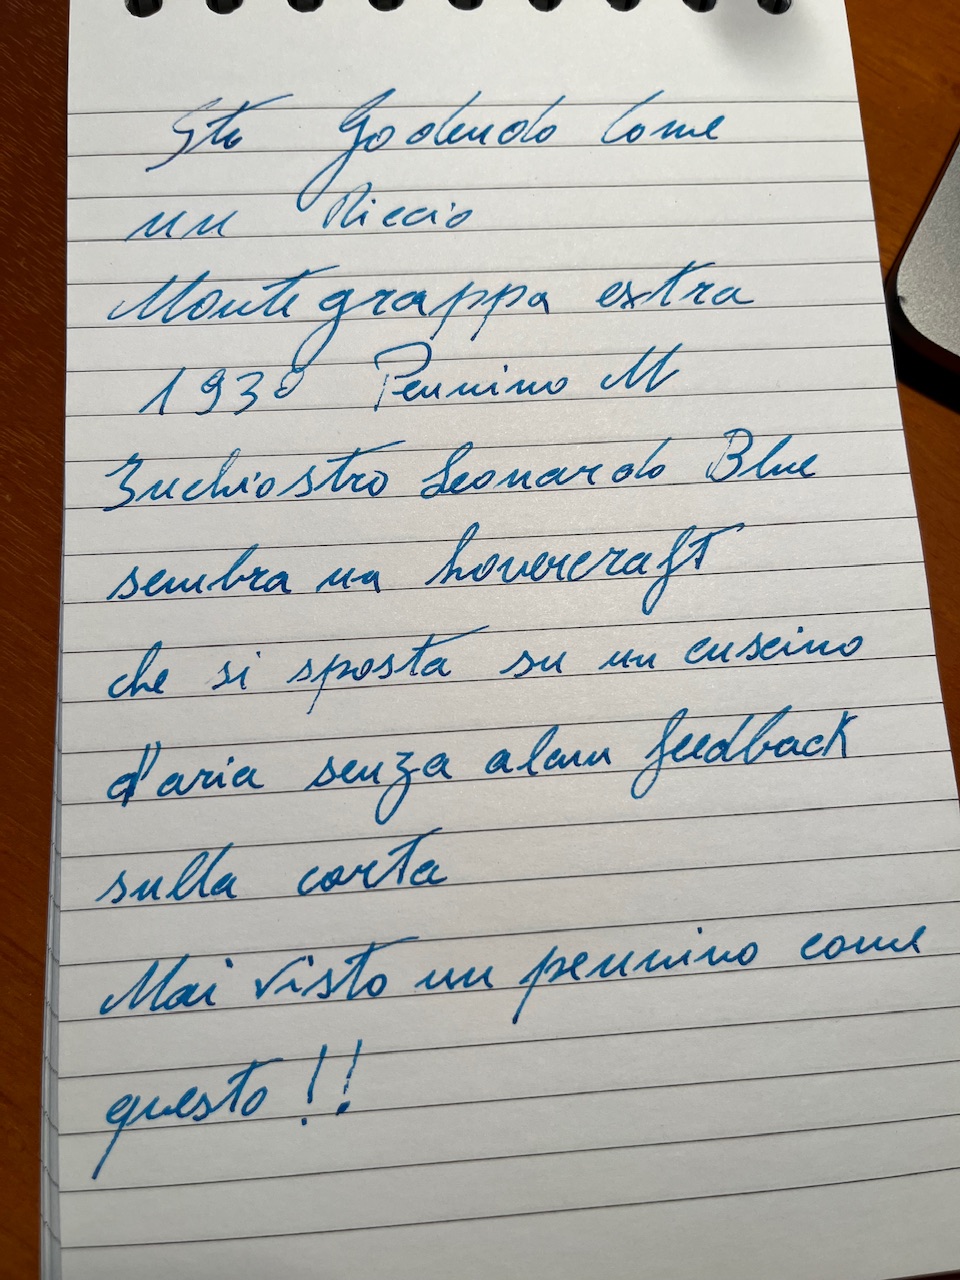 Sto Godendo Come
un Riccio
Montegrappa extra
1930 Pennino M
Inchiostro Leonardo Blue
sembra un hovercraft
che si sposta su un cuscino
d'aria senza alcun feedback
sulla carta
Mai visto un pennino come
questo!!